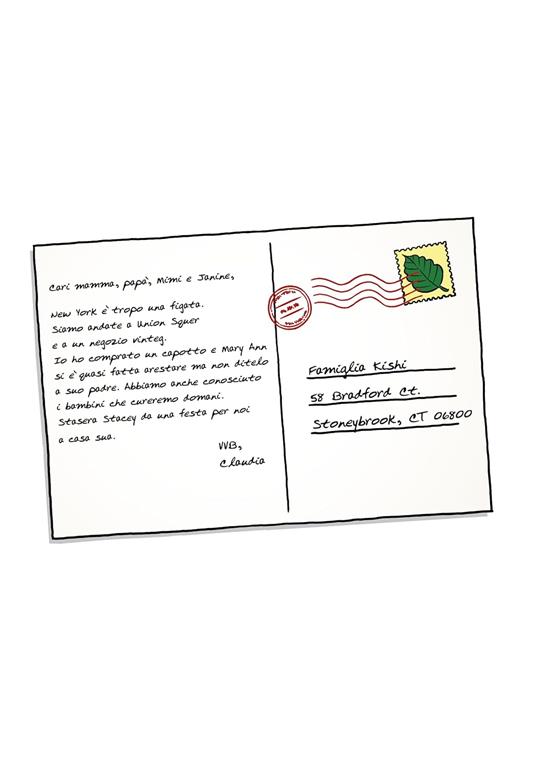 Cari mamma, papà, Mimi e Janine,
New York è tropo una figata.
Siamo andate a Union Squer
e a un negozio vinteg.
Io ho comprato un capotto e Mary Ann
si è quasi fatta arestare ma non ditelo
a suo padre. Abbiamo anche conosciuto
i bambini che cureremo domani.
Stasera Stacey da una festa per noi
a casa sua.
VVB,
Claudia
Famiglia Kishi
58 Bradford Ct.
Stoneybrook, CT 06800